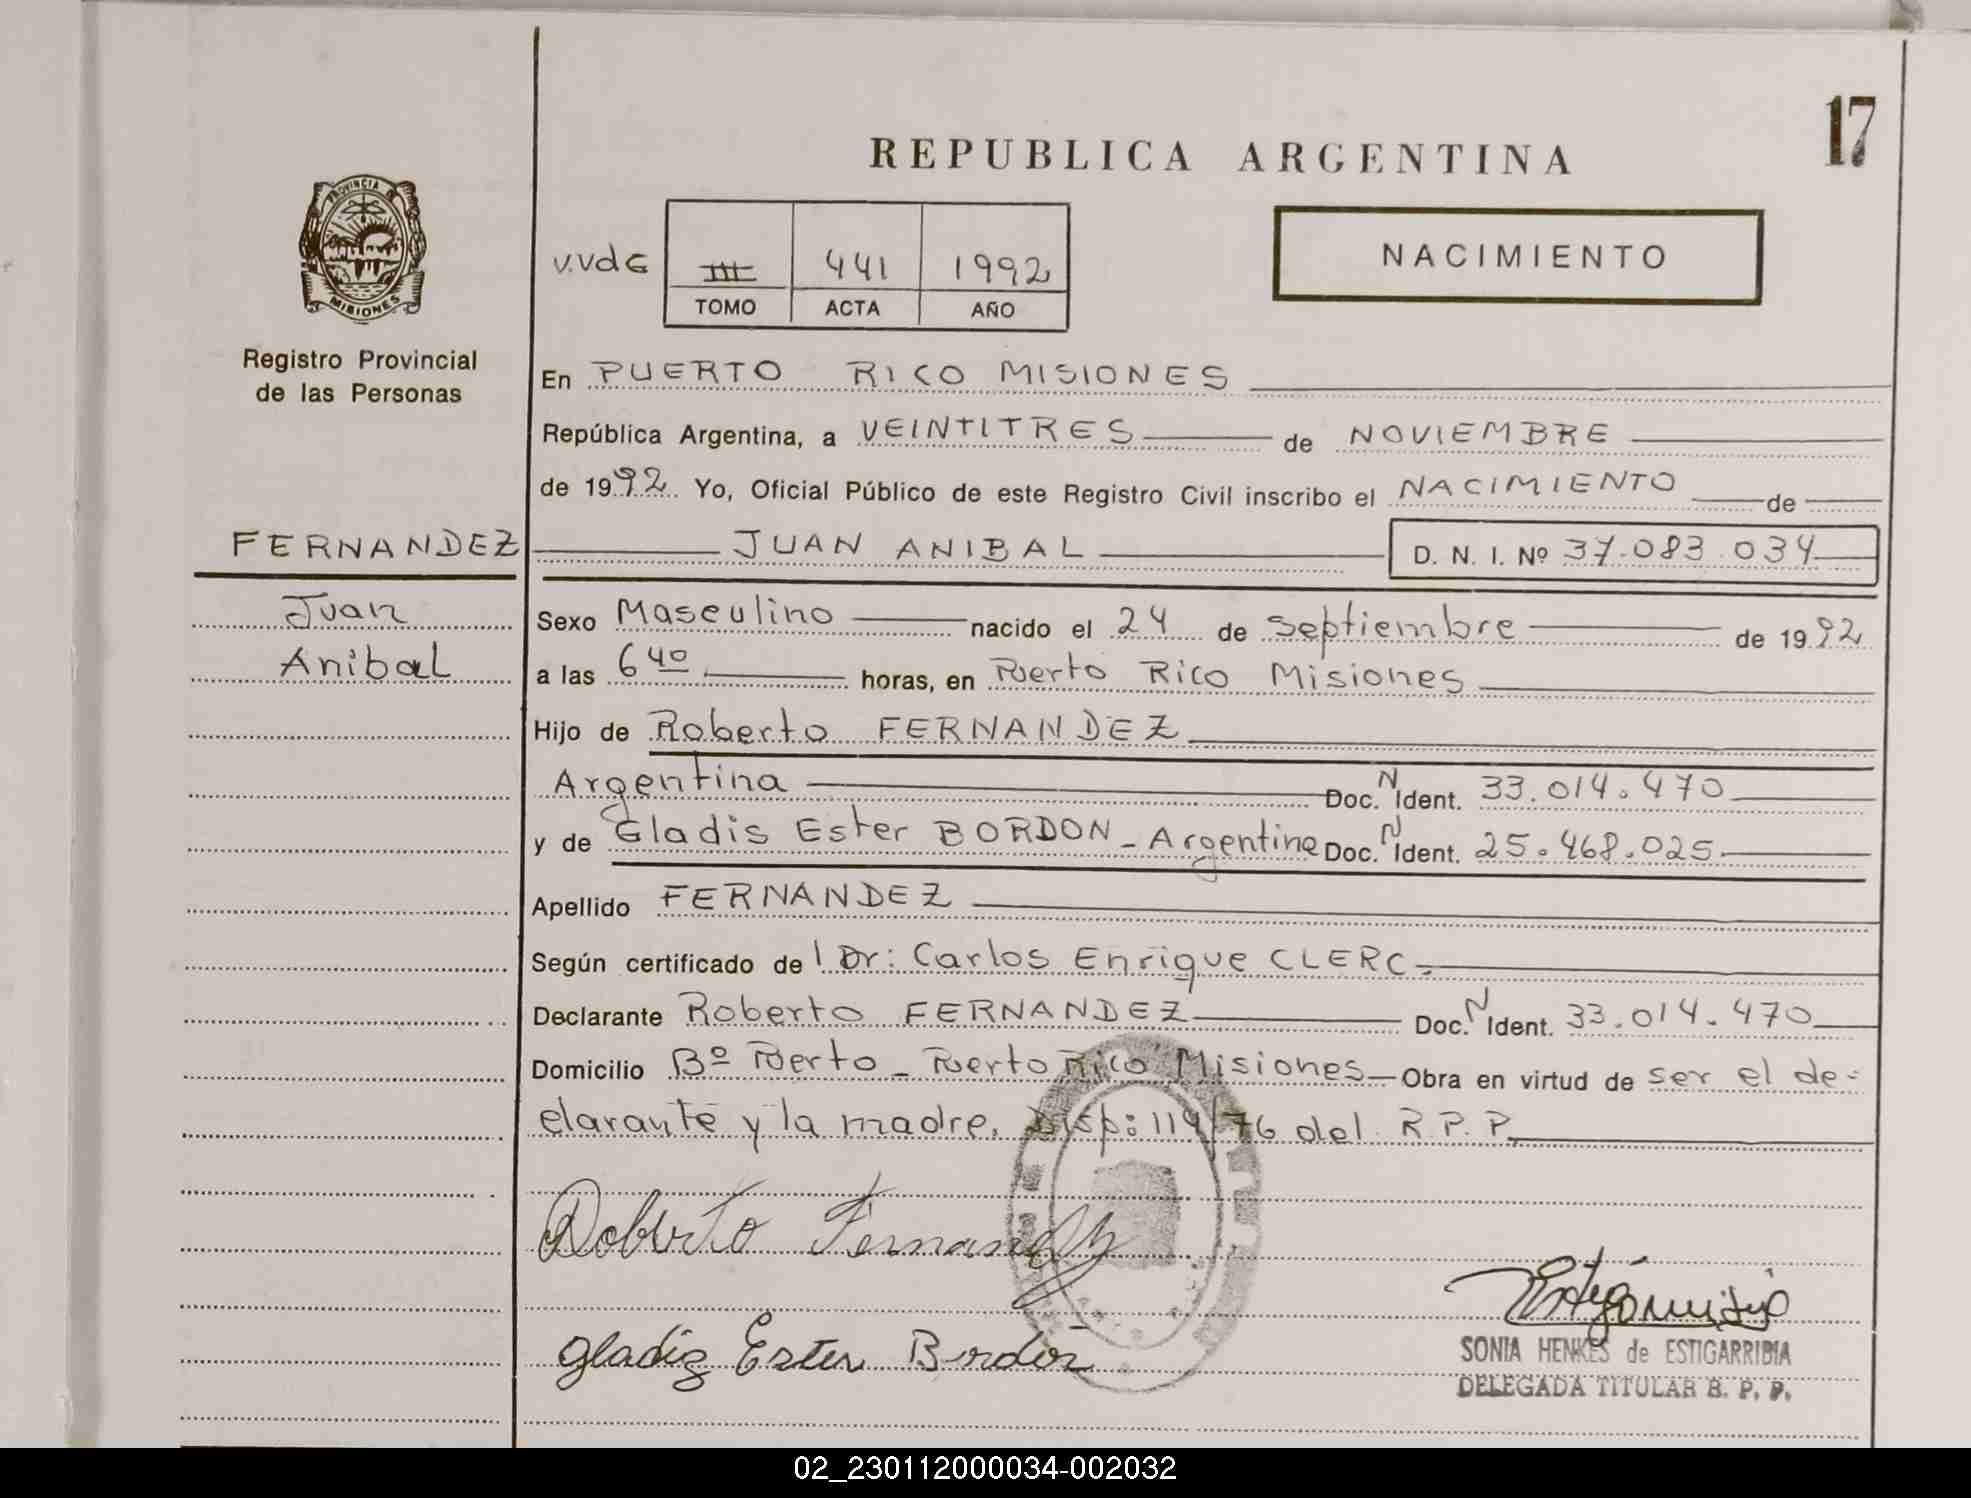 17
REPUBLICA ARGENTINA
PROVINCIA DE
MISIONES
Registro Provincial
de las Personas
V.VdG III 441 1992
TOMO ACTA AÑO
NACIMIENTO
En PUERTO RICO MISIONES
República Argentina, a VEINTITRES de NOVIEMBRE
de 1992 Yo, Oficial Público de este Registro Civil inscribo el NACIMIENTO de
FERNANDEZ JUAN ANIBAL D. N. I. Nº 37.083.034
Juan
Anibal
Sexo Masculino nacido el 24 de Septiembre de 1992
a las 6 40 horas, en Puerto Rico Misiones
Hijo de Roberto FERNANDEZ
Argentina Doc. N Ident. 33.014.470
y de Gladis Ester BORDON - Argentina Doc. N Ident. 25.468.025
Apellido FERNANDEZ
Según certificado del Dr: Carlos Enrique CLERC.
Declarante Roberto FERNANDEZ Doc. N Ident. 33.014.470
Domicilio Bº Puerto - Puerto Rico Misiones Obra en virtud de ser el de-
clarante y la madre. Disp: 114/76 del R.P.P.
Roberto Fernandez
Gladiz Ester Bordón
SONIA HENKES de ESTIGARRIBIA
DELEGADA TITULAR R. P. P.
02_230112000034-002032